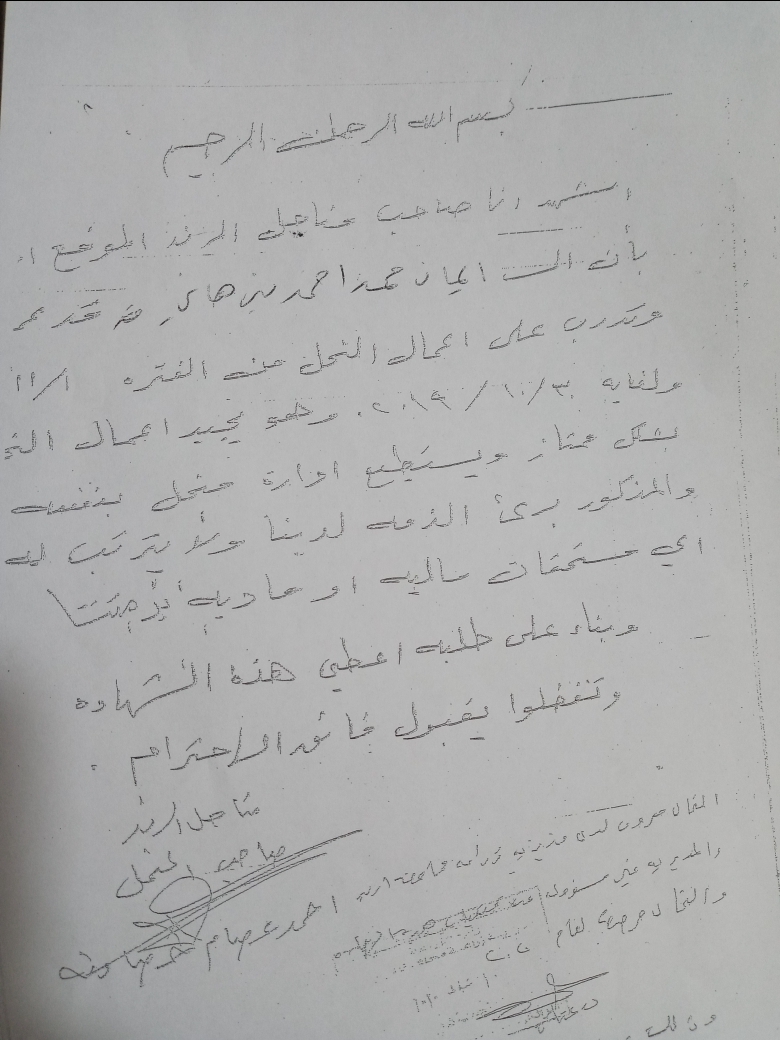 بسم الله الرحمن الرحيم
اشهد انا صاحب مناحل الرند الموقع ا
بأن السيد ايمان محمد احمد بني هاني قد
وتدرب على اعمال النحل من الفتره ١١/١
ولغايه ٢٠١٩/١٠/٣٠ وهو يجيد اعمال النح
بشكل ممتاز ويستطيع ادارة منحل بنفسه
والمذكور برئ الذمه لدينا ولا يترتب له
اي مستحقات ماليه او ماديه
وبناء على طلبه اعطي هذه الشهاده
وتفضلوا بقبول فائق الاحترام .
مناحل الرند
صاحب المنحل
احمد عصام
النحال معروف لدى مديرية زراعة محافظة اربد
والمديريه غير مسؤوله
والنحال مرخص لعام